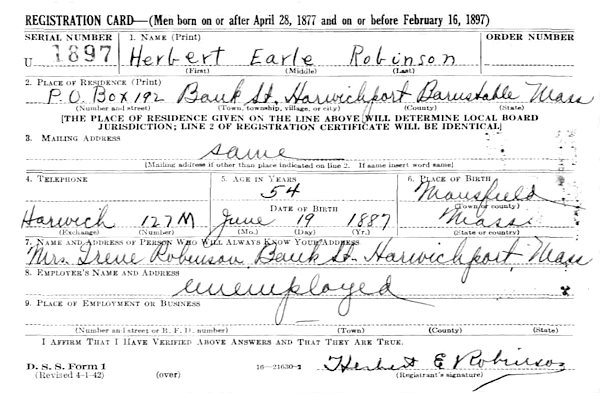 REGISTRATION CARD—(Men born on or after April 28, 1877 and on or before February 16, 1897)
SERIAL NUMBER 1. NAME (Print) ORDER NUMBER
U 1897 Herbert Earle Robinson
(First) (Middle) (Last)
2. PLACE OF RESIDENCE (Print)
P.O. Box 192 Bank St. Harwichport Barnstable Mass
(Number and street) (Town, township, village, or city) (County) (State)
[THE PLACE OF RESIDENCE GIVEN ON THE LINE ABOVE WILL DETERMINE LOCAL BOARD
JURISDICTION; LINE 2 OF REGISTRATION CERTIFICATE WILL BE IDENTICAL]
3. MAILING ADDRESS
same
[Mailing address if other than place indicated on line 2. If same insert word same]
4. TELEPHONE 5. AGE IN YEARS 6. PLACE OF BIRTH
54 Mansfield
DATE OF BIRTH (Town or county)
Harwich 127M June 19 1887 Mass
(Exchange) (Number) (Mo.) (Day) (Yr.) (State or country)
7. NAME AND ADDRESS OF PERSON WHO WILL ALWAYS KNOW YOUR ADDRESS
Mrs. Irene Robinson Bank St. Harwichport, Mass
8. EMPLOYER'S NAME AND ADDRESS
unemployed
9. PLACE OF EMPLOYMENT OR BUSINESS
(Number and street or R. F. D. number) (Town) (County) (State)
I AFFIRM THAT I HAVE VERIFIED ABOVE ANSWERS AND THAT THEY ARE TRUE.
D. S. S. Form 1 Herbert E Robinson
(Revised 4-1-42) (over) 16—21630-2 (Registrant's signature)